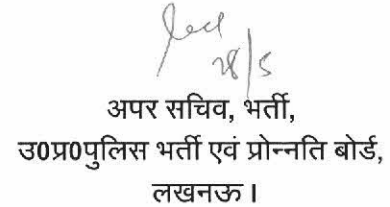 28/5
अपर सचिव, भर्ती,
उ0प्र0पुलिस भर्ती एवं प्रोन्नति बोर्ड,
लखनऊ।